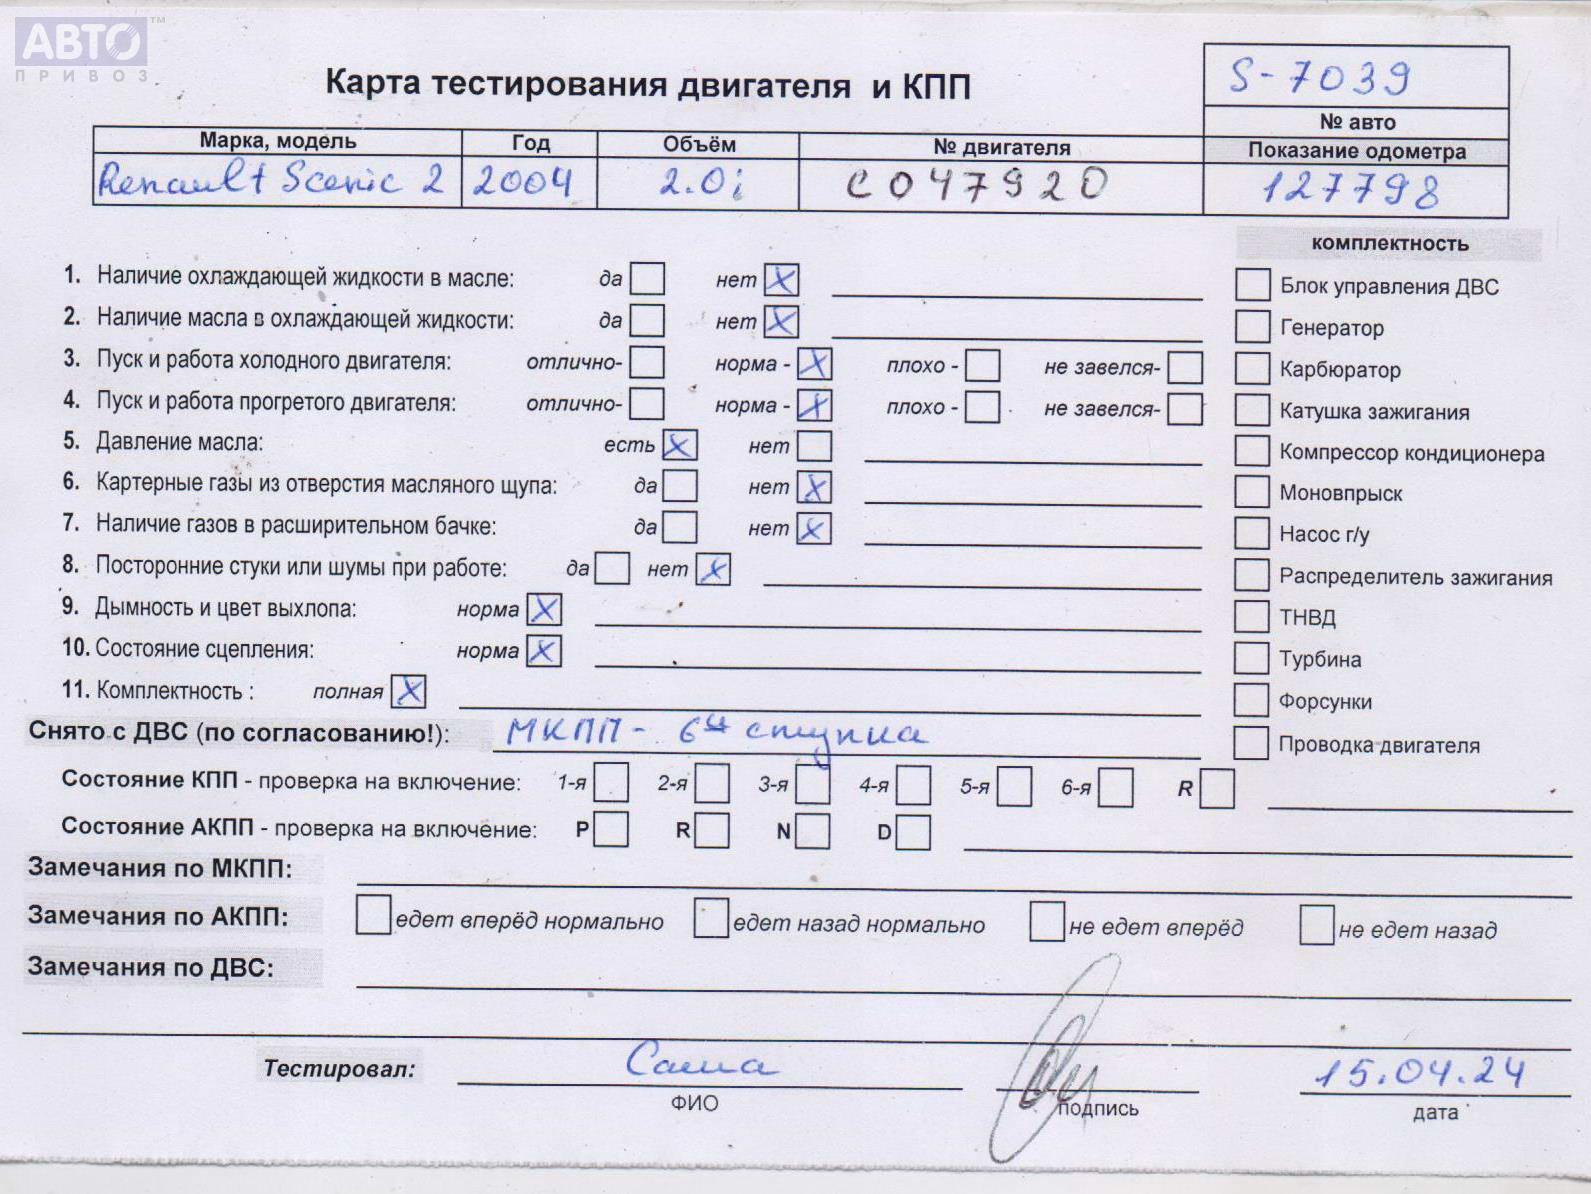 АВТО™
ПРИВОЗ
Карта тестирования двигателя и КПП
S-7039
№ авто
Марка, модель Год Объём № двигателя Показание одометра
Renault Scenic 2 2004 2.0i C047920 127798
комплектность
1. Наличие охлаждающей жидкости в масле: да нет X
2. Наличие масла в охлаждающей жидкости: да нет X
3. Пуск и работа холодного двигателя: отлично- норма - X плохо - не завелся-
4. Пуск и работа прогретого двигателя: отлично- норма - X плохо - не завелся-
5. Давление масла: есть X нет
6. Картерные газы из отверстия масляного щупа: да нет X
7. Наличие газов в расширительном бачке: да нет X
8. Посторонние стуки или шумы при работе: да нет X
9. Дымность и цвет выхлопа: норма X
10. Состояние сцепления: норма X
11. Комплектность : полная X
Блок управления ДВС
Генератор
Карбюратор
Катушка зажигания
Компрессор кондиционера
Моновпрыск
Насос г/у
Распределитель зажигания
ТНВД
Турбина
Форсунки
Проводка двигателя
Снято с ДВС (по согласованию!): МКПП - 6ти ступка
Состояние КПП - проверка на включение: 1-я 2-я 3-я 4-я 5-я 6-я R
Состояние АКПП - проверка на включение: P R N D
Замечания по МКПП:
Замечания по АКПП: едет вперёд нормально едет назад нормально не едет вперёд не едет назад
Замечания по ДВС:
Тестировал: Саша 15.04.24
ФИО подпись дата